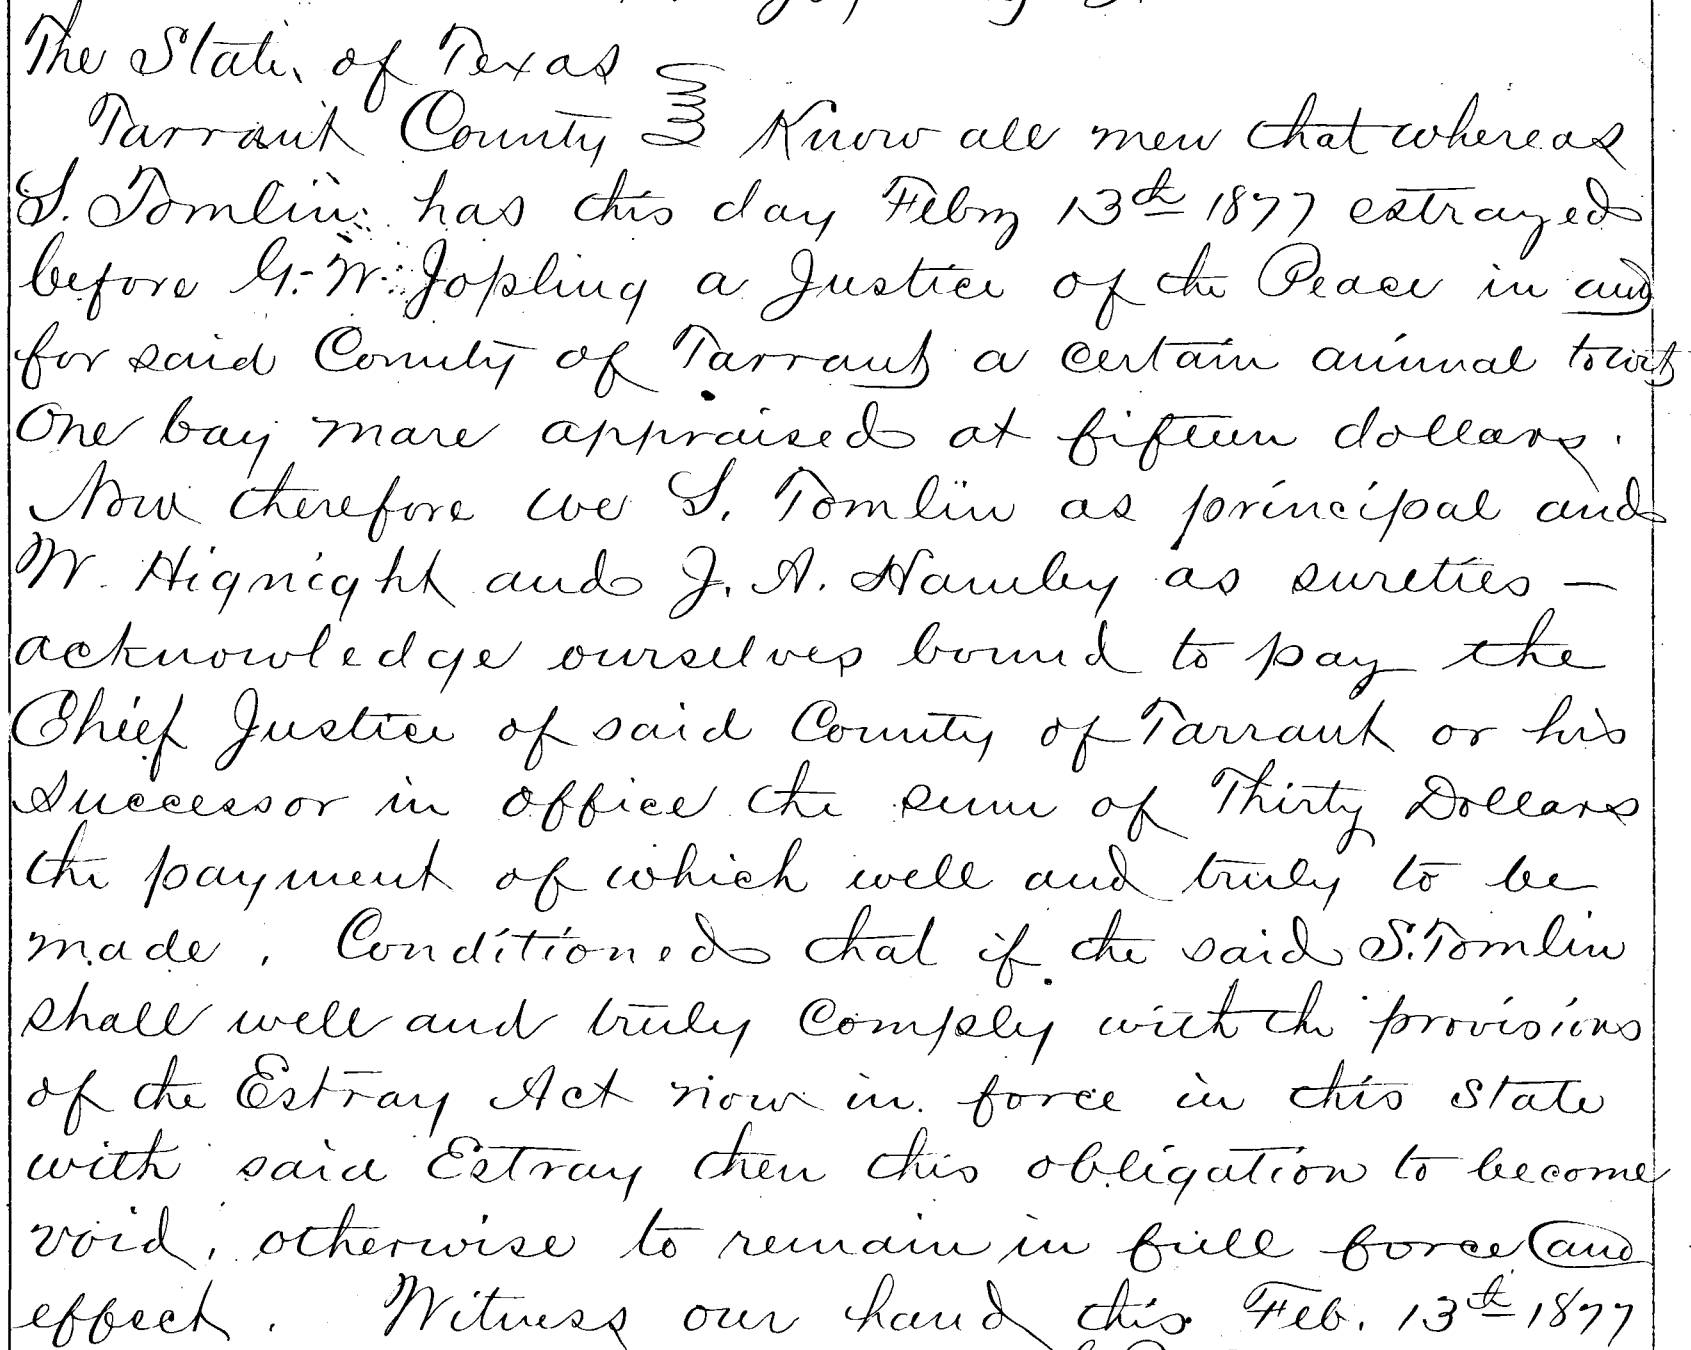 The State of Texas
Tarrant County Know all men that whereas
S. Tomlin has this day Febry 13th 1877 estrayed
before G. W. Jopling a Justice of the Peace in and
for said County of Tarrant a certain animal towit
One bay mare appraised at fifteen dollars.
Now therefore we S. Tomlin as principal and
W. Hignight and J. A. Hamby as sureties —
acknowledge ourselves bound to pay the
Chief Justice of said County of Tarrant or his
Successor in office the sum of Thirty Dollars
the payment of which well and truly to be
made. Conditioned that if the said S. Tomlin
shall well and truly Comply with the provisions
of the Estray Act now in force in this State
with said Estray then this obligation to become
void, otherwise to remain in full force and
effect. Witness our hand this Feb. 13th 1877